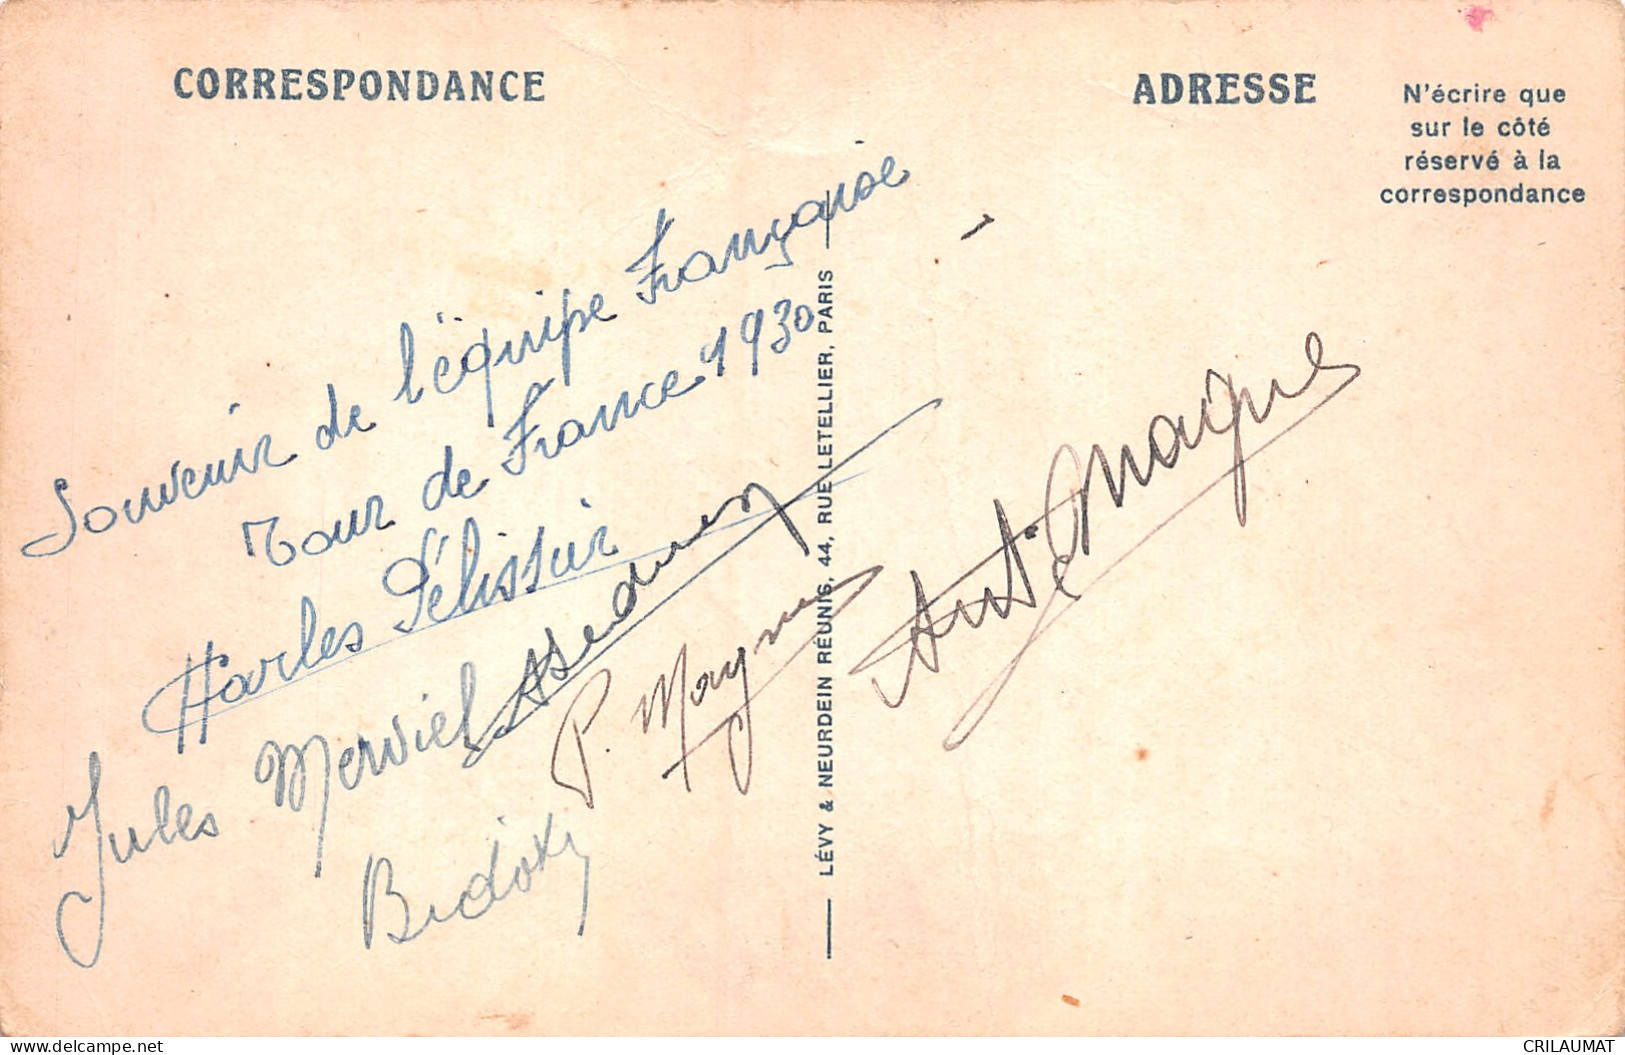 CORRESPONDANCE
ADRESSE
N'écrire que
sur le côté
réservé à la
correspondance
Souvenir de l'équipe Française
Tour de France 1930
Charles Pélissier
Jules Merviel
P. Magne
Ant. Magne
Bidot
LÉVY & NEURDEIN RÉUNIS, 44, RUE LETELLIER, PARIS
delcampe.net
CRILAUMAT